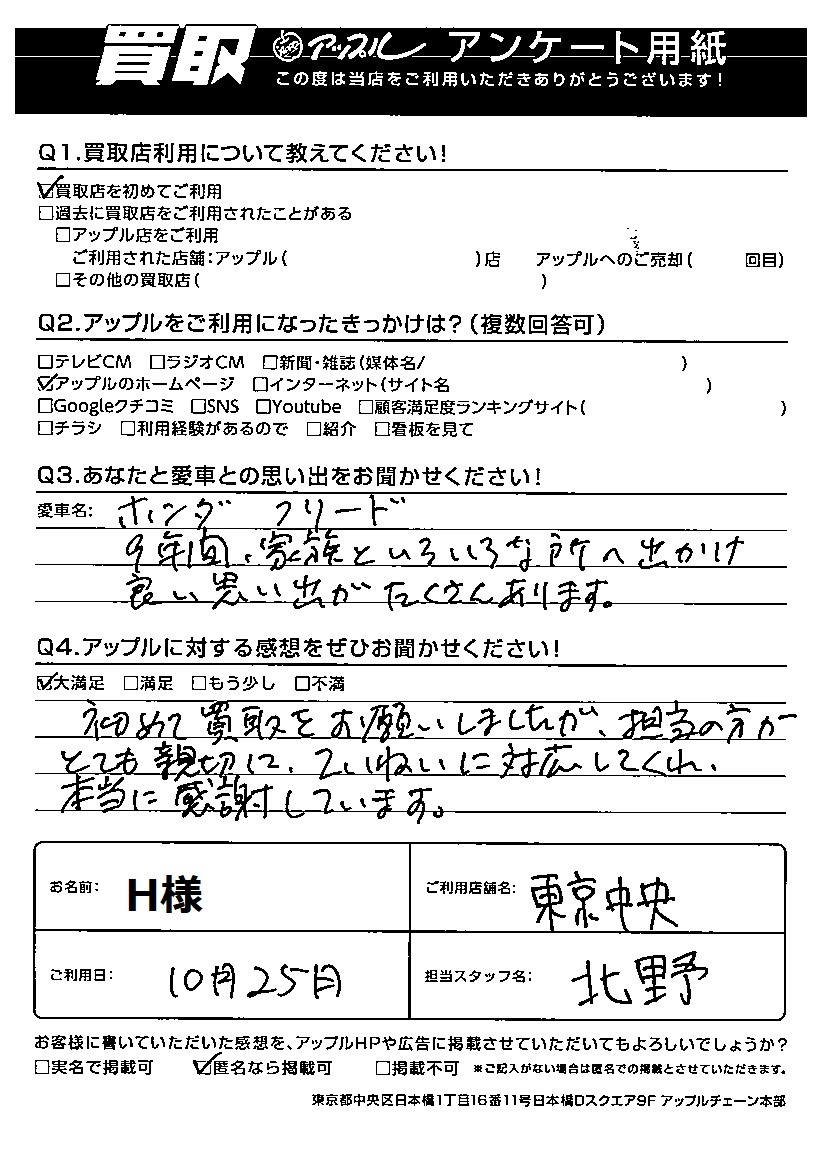 買取 アップル アンケート用紙
この度は当店をご利用いただきありがとうございます!
Q1.買取店利用について教えてください!
☑買取店を初めてご利用
□過去に買取店をご利用されたことがある
□アップル店をご利用
ご利用された店舗:アップル( )店 アップルへのご売却( 回目)
□その他の買取店( )
Q2.アップルをご利用になったきっかけは?(複数回答可)
□テレビCM □ラジオCM □新聞・雑誌(媒体名/ )
☑アップルのホームページ □インターネット(サイト名 )
□Googleクチコミ □SNS □Youtube □顧客満足度ランキングサイト( )
□チラシ □利用経験があるので □紹介 □看板を見て
Q3.あなたと愛車との思い出をお聞かせください!
愛車名: ホンダ フリード
9年間、家族といろいろな所へ出かけ
良い思い出がたくさんあります。
Q4.アップルに対する感想をぜひお聞かせください!
☑大満足 □満足 □もう少し □不満
初めて買取をお願いしましたが、担当の方が
とても親切に、ていねいに対応してくれ、
本当に感謝しています。
お名前: H様 ご利用店舗名: 東京中央
ご利用日: 10月25日 担当スタッフ名: 北野
お客様に書いていただいた感想を、アップルHPや広告に掲載させていただいてもよろしいでしょうか?
□実名で掲載可 ☑匿名なら掲載可 □掲載不可 ※ご記入がない場合は匿名での掲載とさせていただきます。
東京都中央区日本橋1丁目16番11号日本橋Dスクエア9F アップルチェーン本部